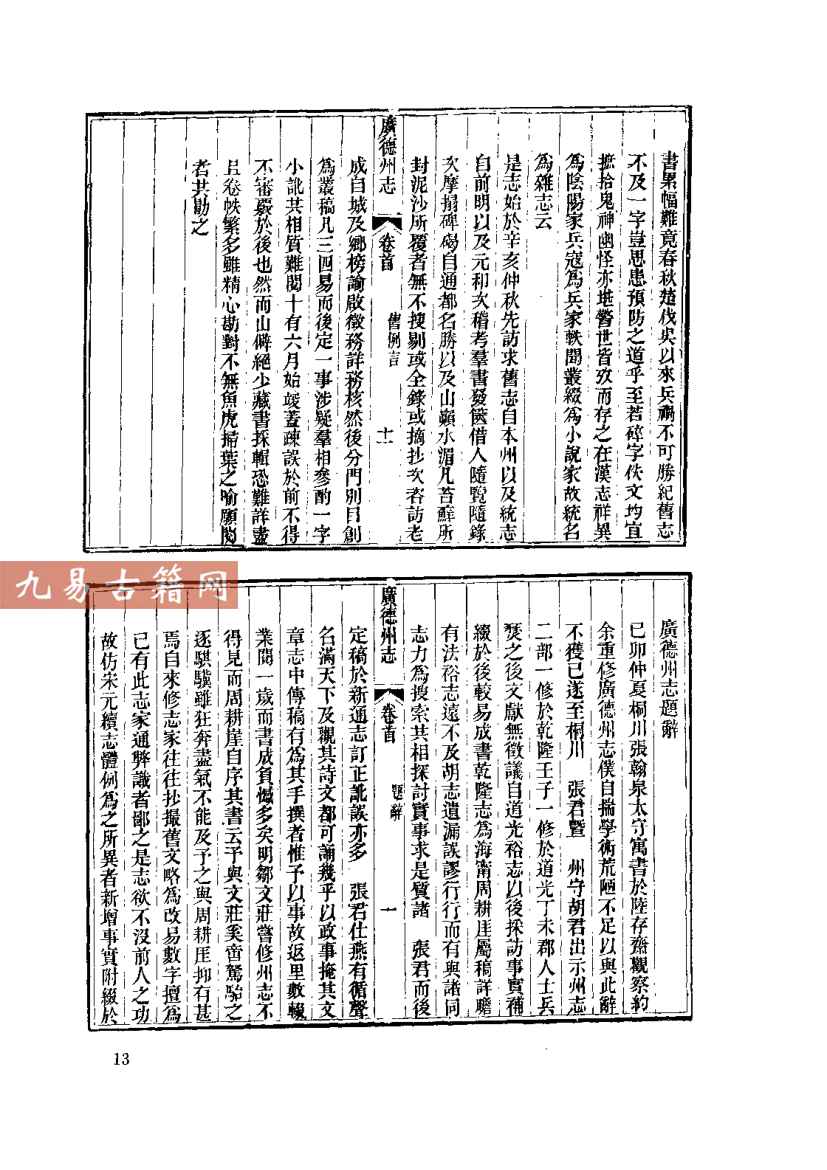 書累幅難竟春秋楚伐吳以來兵禍不可勝紀舊志
不及一字豈思患預防之道乎至若碎字佚文均宜
摭拾鬼神幽怪亦堪警世皆攷而存之在漢志祥異
爲陰陽家兵寇爲兵家軼聞叢綴爲小說家故統名
爲雜志云
是志始於辛亥仲秋先訪求舊志自本州以及統志
自前明以及元和次稽考羣書發篋借人隨覽隨錄
次摩搨碑碣自通都名勝以及山巔水湄凡苔蘚所
封泥沙所覆者無不搜剔或全錄或摘抄次咨訪老
廣德州志
卷首
舊例言
十一
成自城及鄉榜諭啟徵務詳務核然後分門別目創
爲叢稿凡三四易而後定一事涉疑羣相參酌一字
小訛共相質難閱十有六月始竣蓋疎誤於前不得
不審覈於後也然而山僻絕少藏書採輯恐難詳盡
且卷帙繁多雖精心勘對不無魚虎掃葉之喻願閱
者共勘之
廣德州志題辭
巳卯仲夏桐川張翰泉太守寓書於陸存齋觀察約
余重修廣德州志僕自揣學術荒陋不足以與此辭
不獲已遂至桐川 張君暨 州守胡君出示州志
二部一修於乾隆壬子一修於道光丁未郡人士兵
燹之後文獻無徵議自道光裕志以後採訪事實補
綴於後較易成書乾隆志為海甯周耕厓屬稿詳贍
有法裕志遠不及胡志遺漏誤謬行行而有與諸同
志力爲搜索其相探討實事求是質諸 張君而後
廣德州志
卷首
題辭
一
定稿於新通志訂正訛誤亦多 張君仕燕有循聲
名滿天下及觀其詩文都可誦幾乎以政事掩其文
章志中傳稿有爲其手撰者惟予以事故返里數輟
業閱一歲而書成負慙多矣明鄒文莊嘗修州志不
得見而周耕崖自序其書云予與文莊奚啻駑駘之
逐騏驥雖狂奔盡氣不能及予之與周耕厓抑有甚
焉自來修志家往往抄撮舊文略爲改易數字擅爲
已有此志家通弊識者鄙之是志欲不沒前人之功
故仿宋元續志體例爲之所異者新增事實附綴於
九易古籍网
13